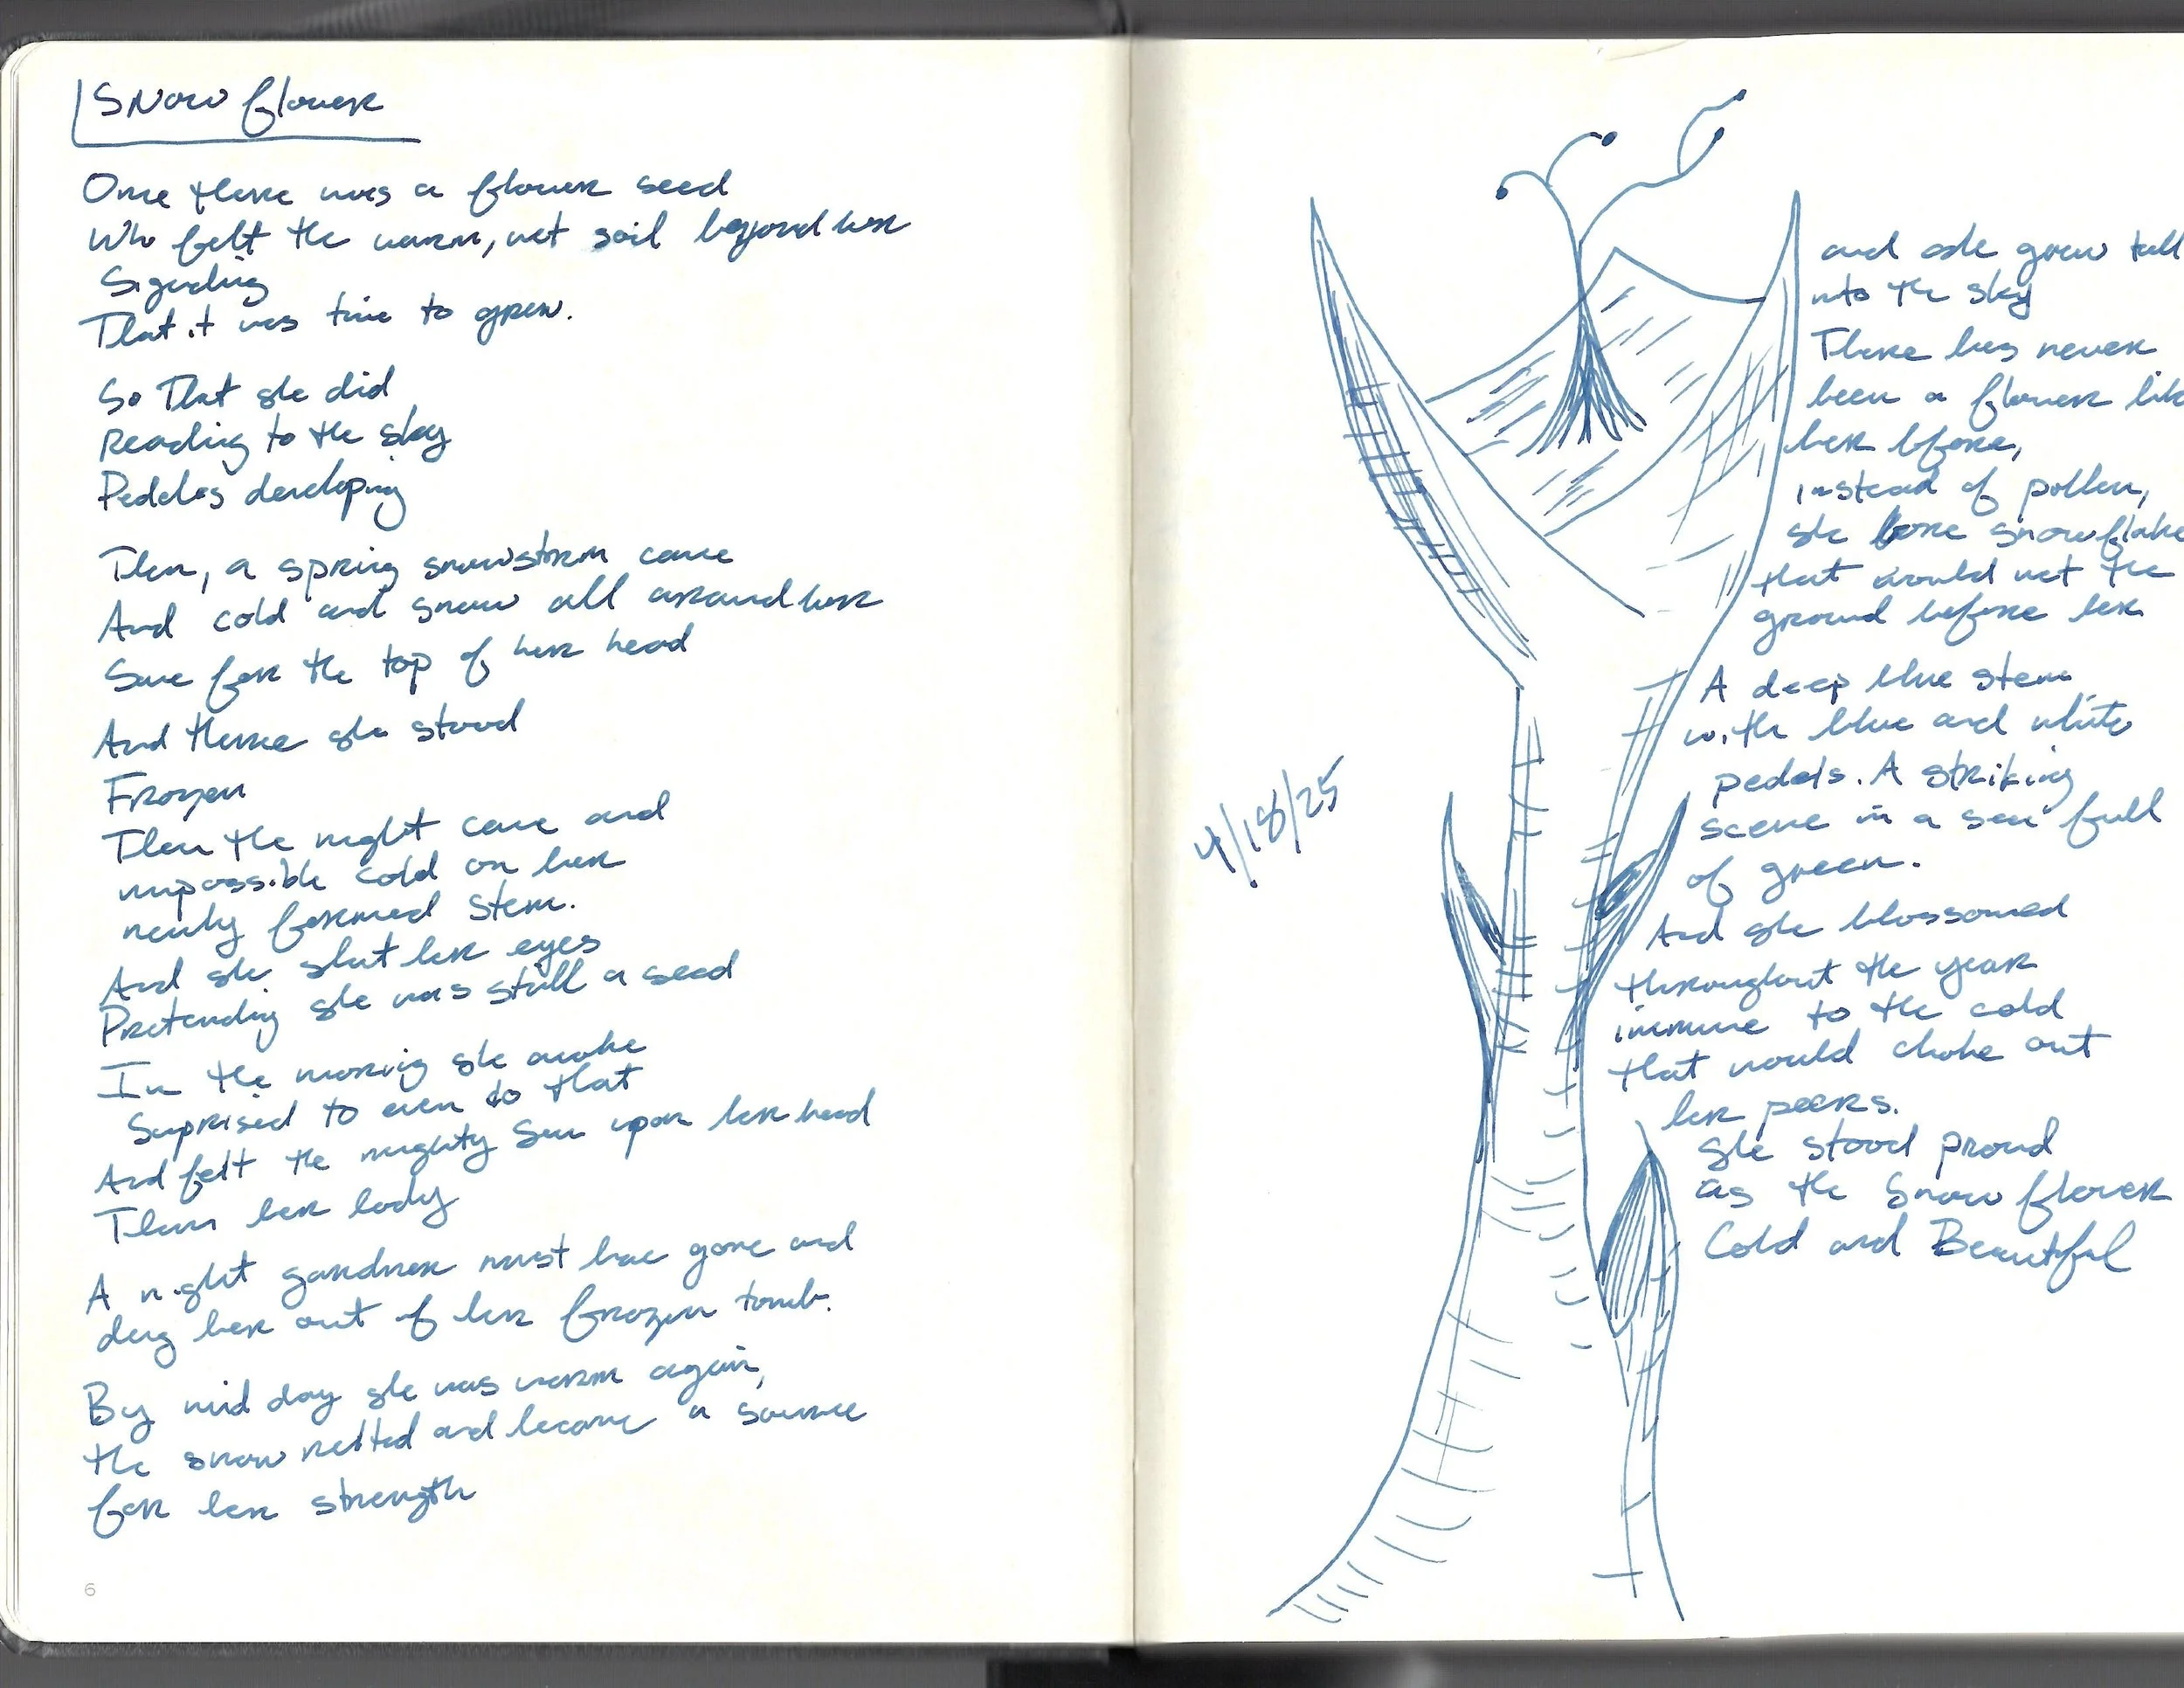 Snow flower
Once there was a flower seed
Who felt the warm, wet soil beyond her
Signaling
That it was time to grow.
So That she did
Reaching to the sky
Peddles developing
Then, a spring snowstorm came
And cold and snow all around her
Save for the top of her head
And there she stood
Frozen
Then the night came and
impossible cold on her
newly formed stem.
And she shut her eyes
Pretending she was still a seed
In the morning she awoke
Suprised to even do that
And felt the mighty Sun upon her head
Then her body
A night gardner must have gone and
dug her out of her frozen tomb.
By mid day she was warm again,
the snow melted and became a source
for her strength
6
and she grew tall
into the sky
There has never
been a flower lik
her before,
instead of pollen,
she bore snowflake
that would wet the
ground before her
A deep blue stem
with blue and white
pedals. A striking
scene in a sea full
of green.
And she blossomed
throughout the year
immune to the cold
that would choke out
her peers.
She stood proud
as the Snow flower
Cold and Beautiful
4/18/25